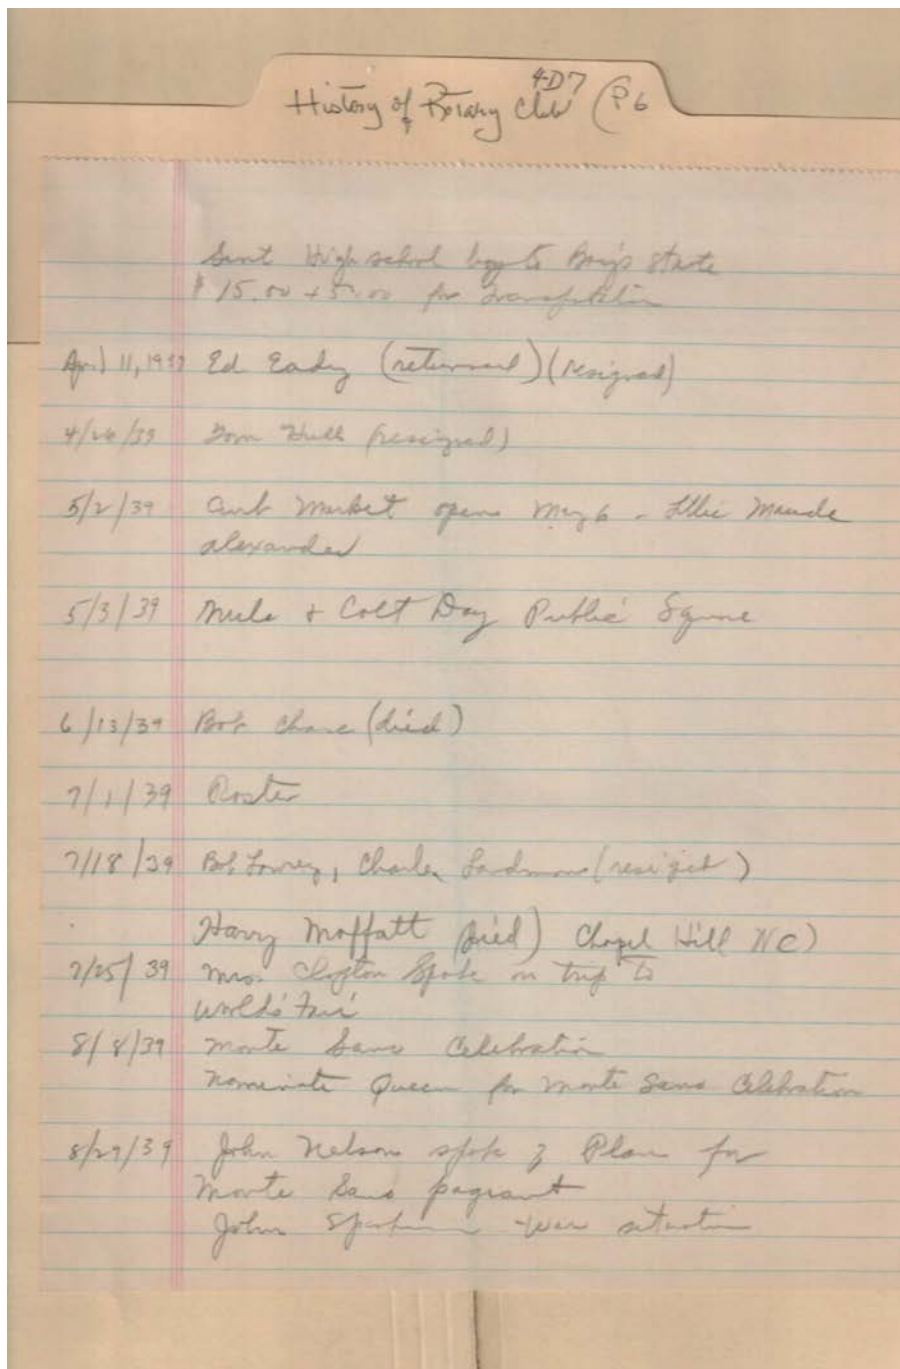 4-D7
History of Rotary Club (P6
Sent High school boy to Boy's State
$15.00 + 5.00 for transportation
April 11, 19 Ed Eady (returned) (resigned)
4/26/39 Tom Hull (resigned)
5/2/39 Curb Market opens May 6 - Maude
Alexander
5/3/39 Mule + Colt Day Public Square
6/13/39 Bob Chase (died)
7/1/39 Roster
7/18/39 Bob Lowrey, Charles (resigned)
Harry Moffatt (died) Chapel Hill NC)
7/25/39 Mrs. Clayton Spoke on trip to
World's Fair
8/8/39 Monte Sano Celebration
Nominate Queen for Monte Sano Celebration
8/29/39 John Nelson spoke of Plan for
Monte Sano pageant
John Sparkman - War situation